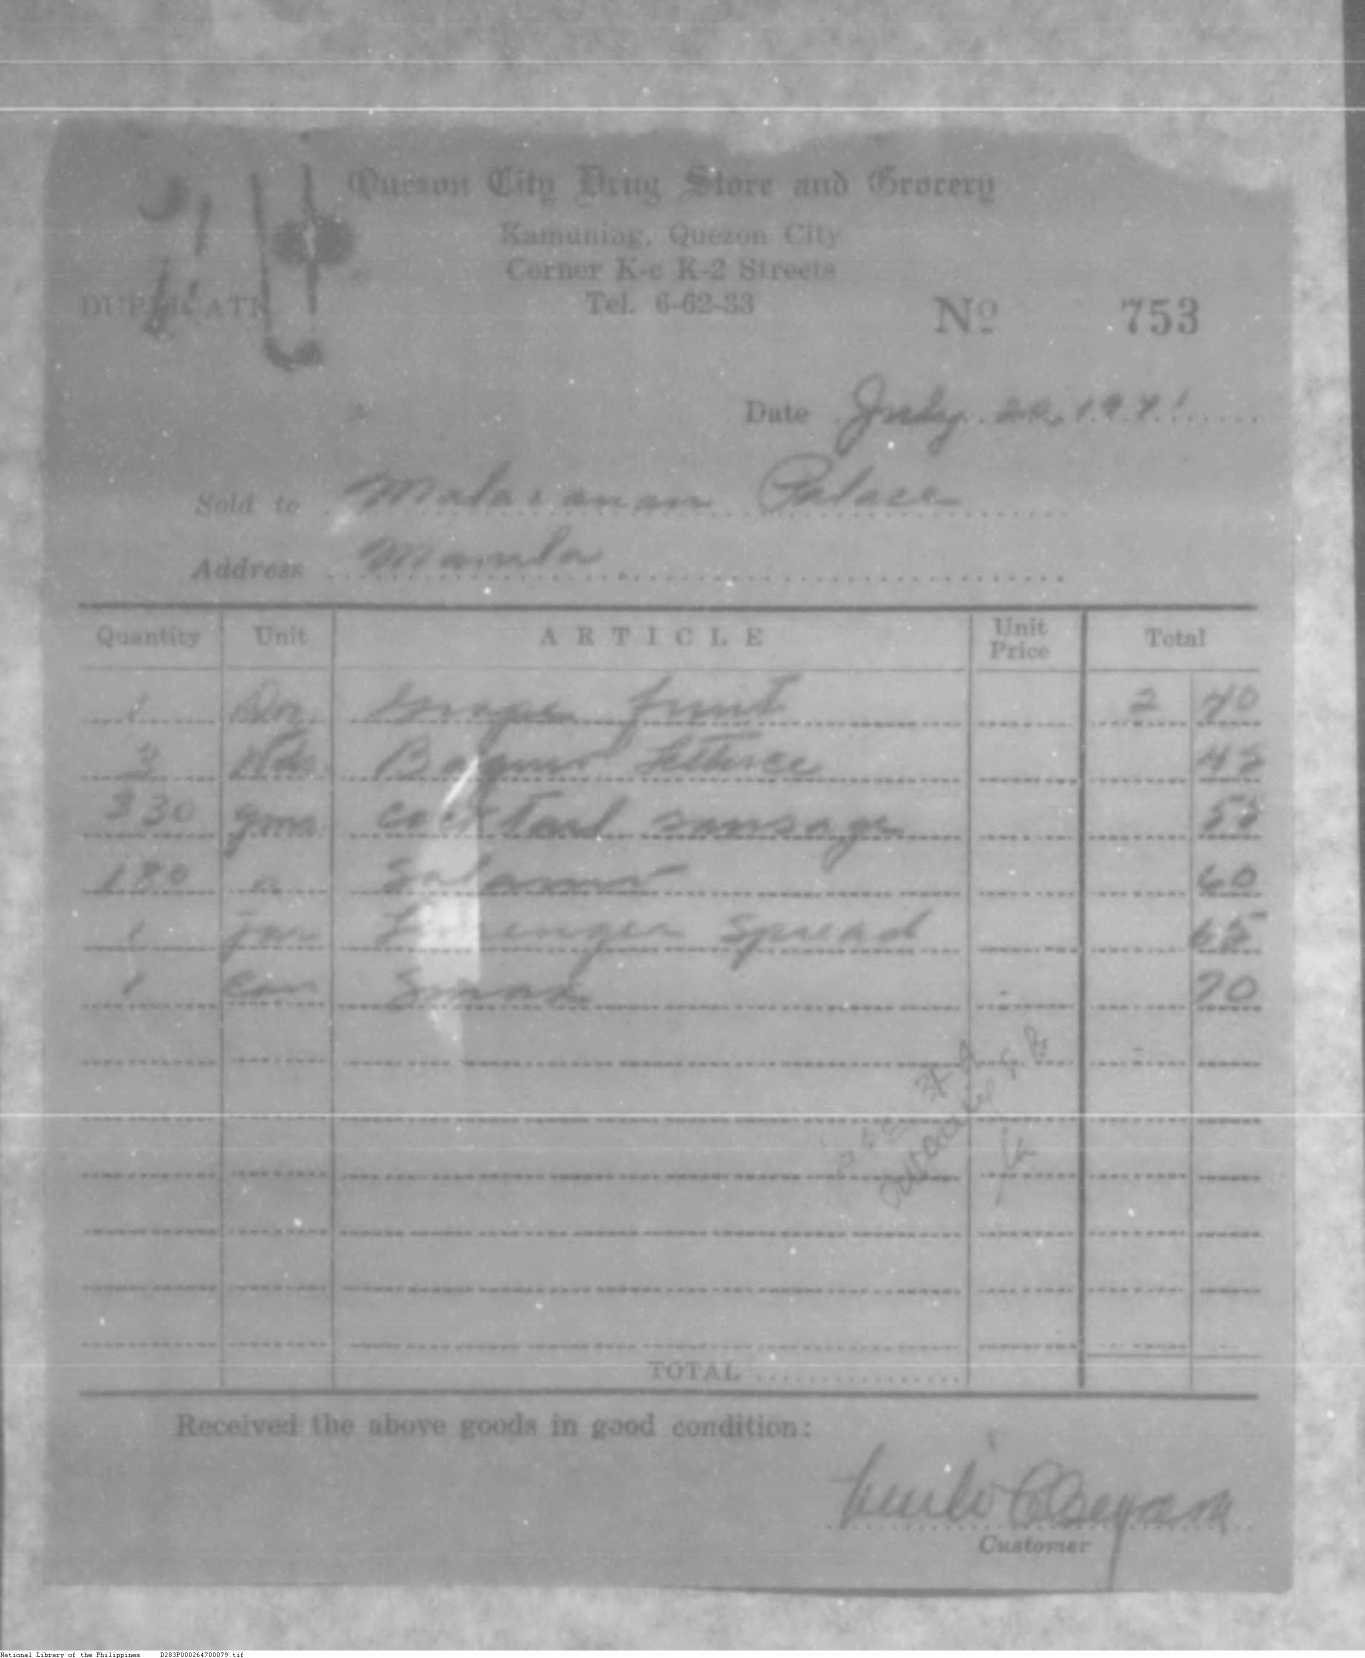 Quezon City Drug Store and Grocery
Kamuning, Quezon City
Corner K-c K-2 Streets
DUPLICATE
Tel. 6-62-33
Nº 753
Date July 1941
Sold to Malacanan Palace
Address Manila
Quantity Unit ARTICLE Unit Price Total
1 Doz. Grape fruit 2 40
3 Baguio Lettuce 45
330 gms. Cocktail sausage 55
Salami 60
1 jar Spread 65
1 can 70
TOTAL
Received the above goods in good condition:
Customer
National Library of the Philippines D283P000264700079.tif